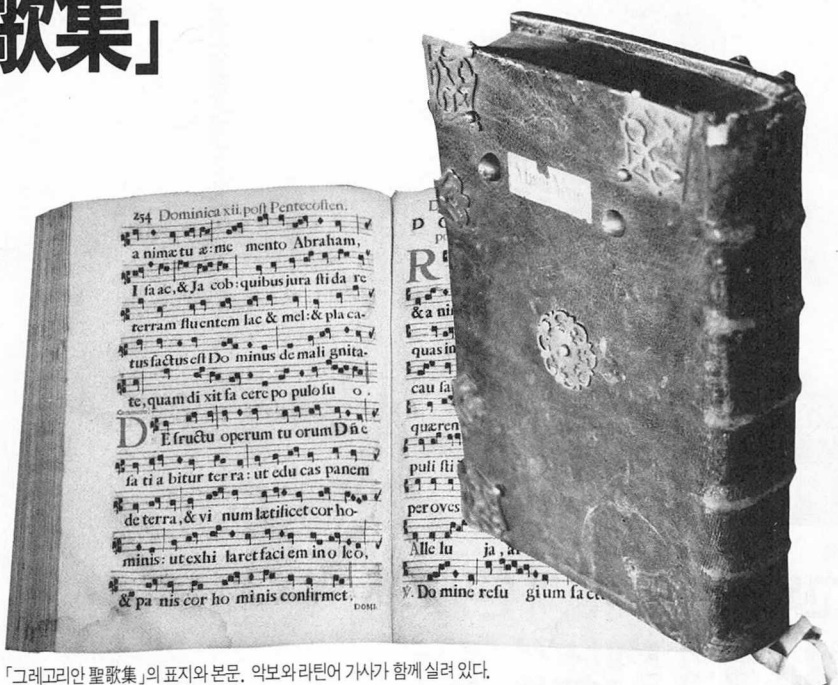 歌集」
254 Dominica xii. post Pentecosten.
a nimæ tu æ: me mento Abraham,
I saac, & Ja cob: quibus jura sti da re
terram fluentem lac & mel: & pla ca-
tus factus est Do minus de mali gnita-
te, quam di xit fa cere po pulo su o.
Communio.
DE fructu operum tu orum Dñe
sa ti a bitur ter ra: ut edu cas panem
de terra, & vi num lætificet cor ho-
minis: ut exhi laret faci em in o leo,
& pa nis cor ho minis confirmet.
DOMI-
D
R
& a ni
quas in
cau sa
quæren
puli sti
per oves
Alle lu ja, a
℣. Do mine refu gi um fa ct
「그레고리안 聖歌集」의 표지와 본문. 악보와 라틴어 가사가 함께 실려 있다.